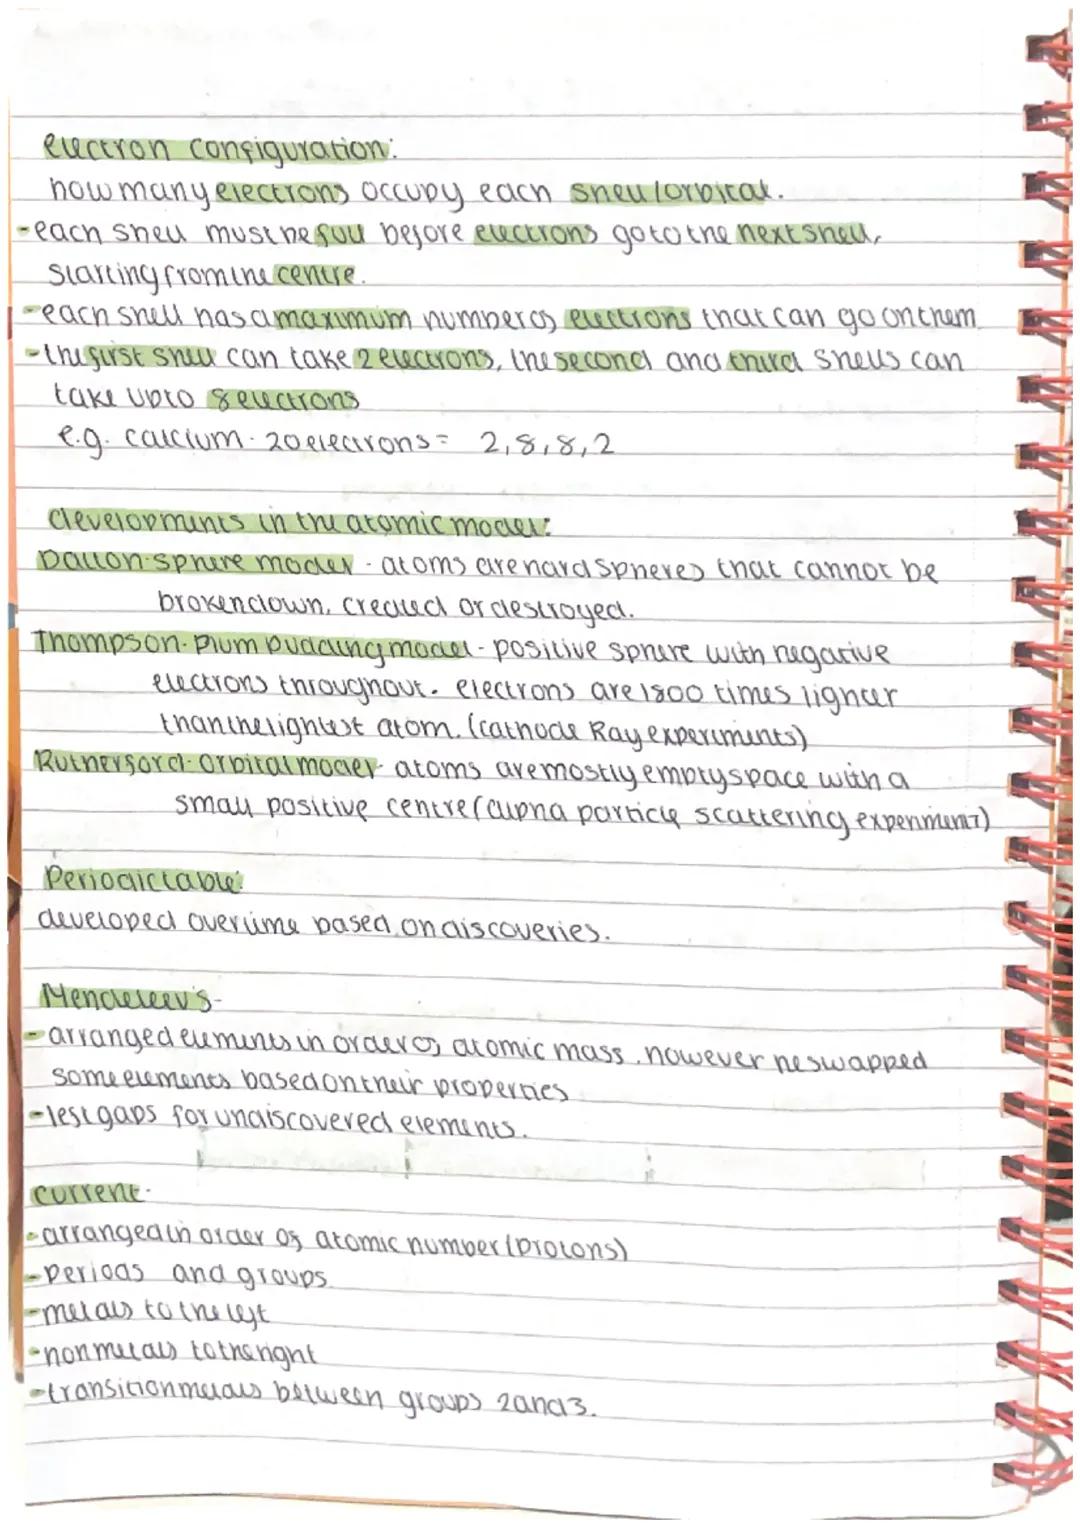 electron configuration:
how many electrons occupy each shell/orbital.
-each shell must be full before electrons go to the next shell,
starting from the centre.
-each shell has a maximum number of electrons that can go on them
-the first shell can take 2 electrons, the second and third shells can
take upto 8 electrons
e.g. calcium - 20 electrons = 2,8,8,2
developments in the atomic model:
Dalton-sphere model - atoms are hard spheres that cannot be
broken down, created or destroyed.
Thompson-Plum pudding model - positive sphere with negative
electrons throughout. electrons are 1800 times lighter
than the lightest atom. (Cathode Ray experiments)
Rutherford-Orbital model- atoms are mostly empty space with a
small positive centre (alpha particle scattering experiment)
Periodic table:
developed overtime based on discoveries.
Mendeleev's-
-arranged elements in order of atomic mass. however he swapped
some elements based on their properties
-left gaps for undiscovered elements.
current-
-arranged in order of atomic number (protons)
-periods and groups
-metals to the left
-nonmetals to the right
-transition metals between groups 2 and 3.